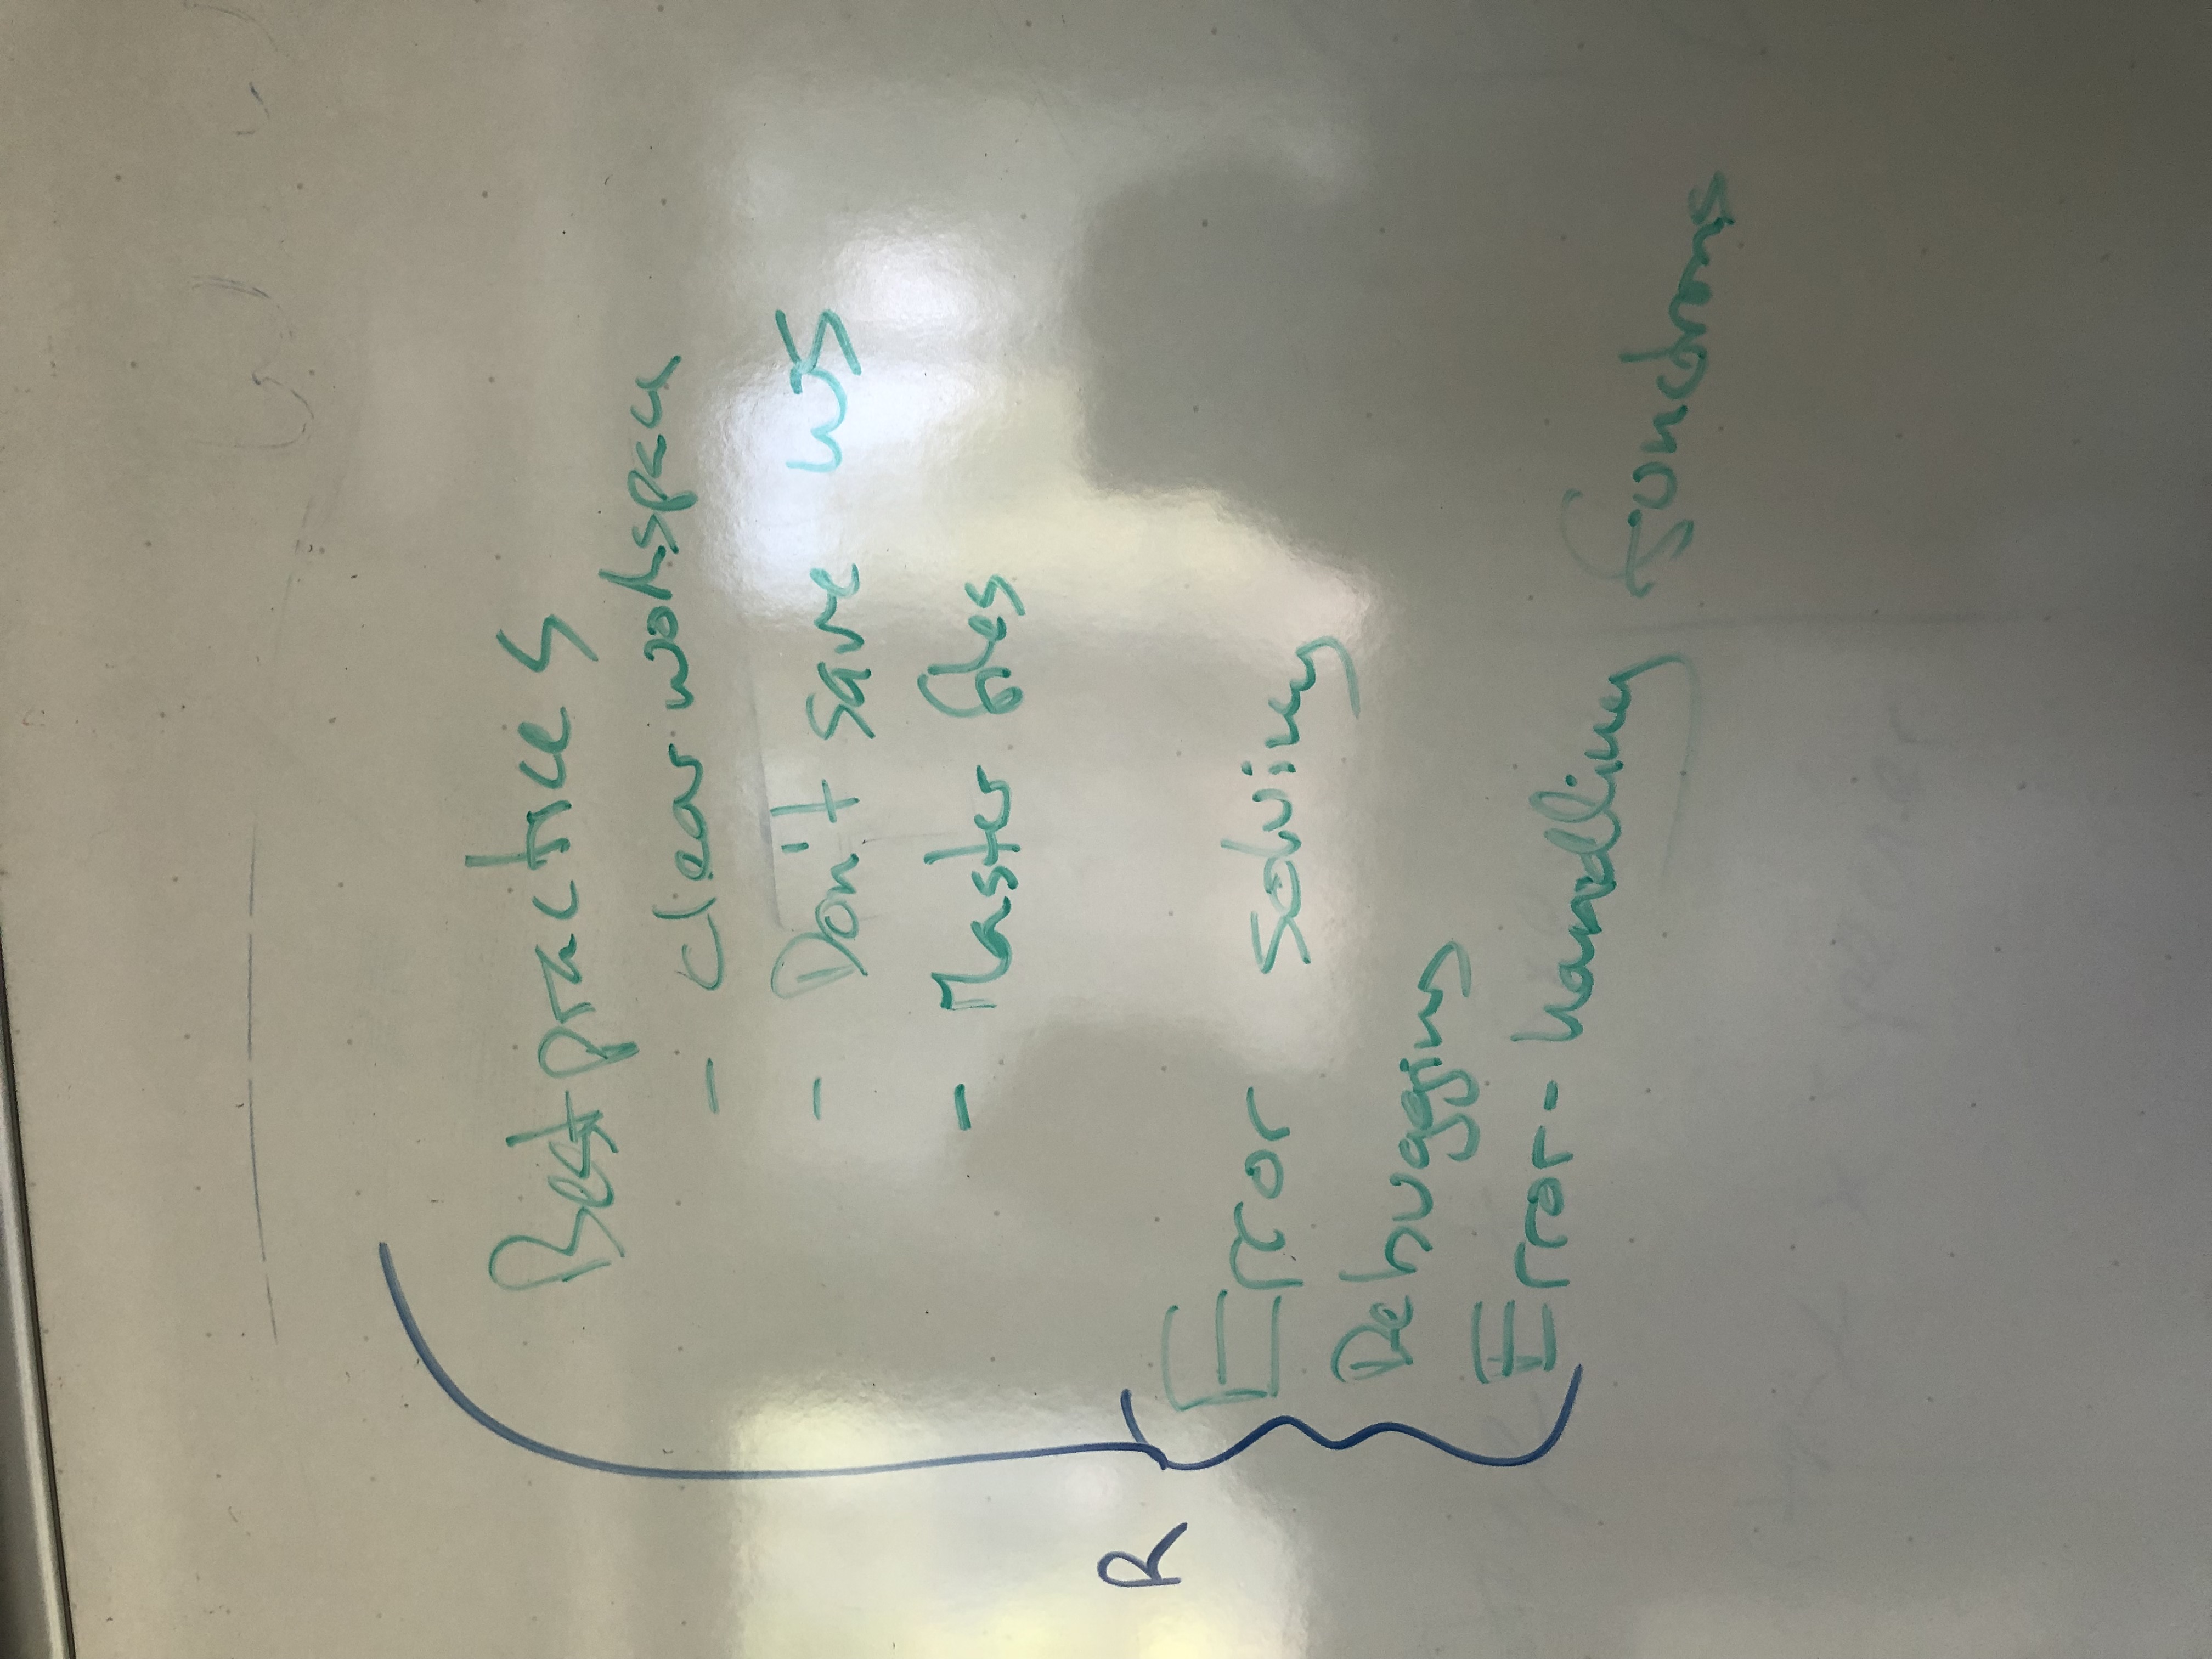 Best practices
- clear workspace
- Don't save WS
- Master files
R
Error solving
Debugging
Error-handling functions